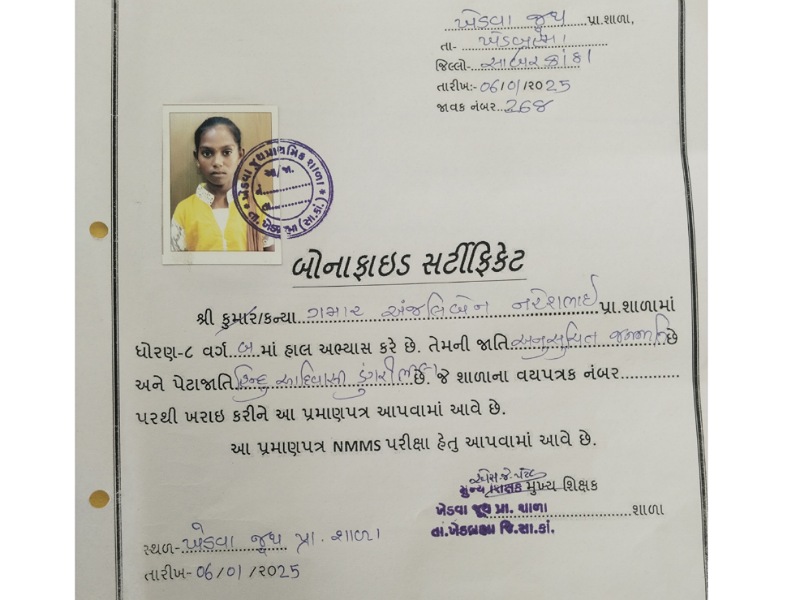 ખેડવા જુથ પ્રા.શાળા,
તા- ખેડબ્રહ્મા
જિલ્લો- સાબરકાંઠા
તારીખ:- 06/01/૨૦25
જાવક નંબર...268
ખેડવા જુથ પ્રાથમિક શાળા
આ/જા.
તા. ખેડબ્રહ્મા (સા.કાં.)
બોનાફાઇડ સર્ટીફિકેટ
શ્રી કુમાર/કન્યા ગમાર અંજલિબેન નરેશભાઈ પ્રા.શાળામાં
ધોરણ-૮ વર્ગ બ માં હાલ અભ્યાસ કરે છે. તેમની જાતિ અનુસુચિત જનજાતિ છે
અને પેટાજાતિ હિન્દુ આદિવાસી ડુંગરી ભીલ છે. જે શાળાના વયપત્રક નંબર............
પરથી ખરાઇ કરીને આ પ્રમાણપત્ર આપવામાં આવે છે.
આ પ્રમાણપત્ર NMMS પરીક્ષા હેતુ આપવામાં આવે છે.
મુખ્ય શિક્ષક મુખ્ય શિક્ષક
ખેડવા જુથ પ્રા. શાળા શાળા
તા. ખેડબ્રહ્મા જિ.સા.કાં.
સ્થળ- ખેડવા જુથ પ્રા. શાળા
તારીખ- 06/01/૨૦25